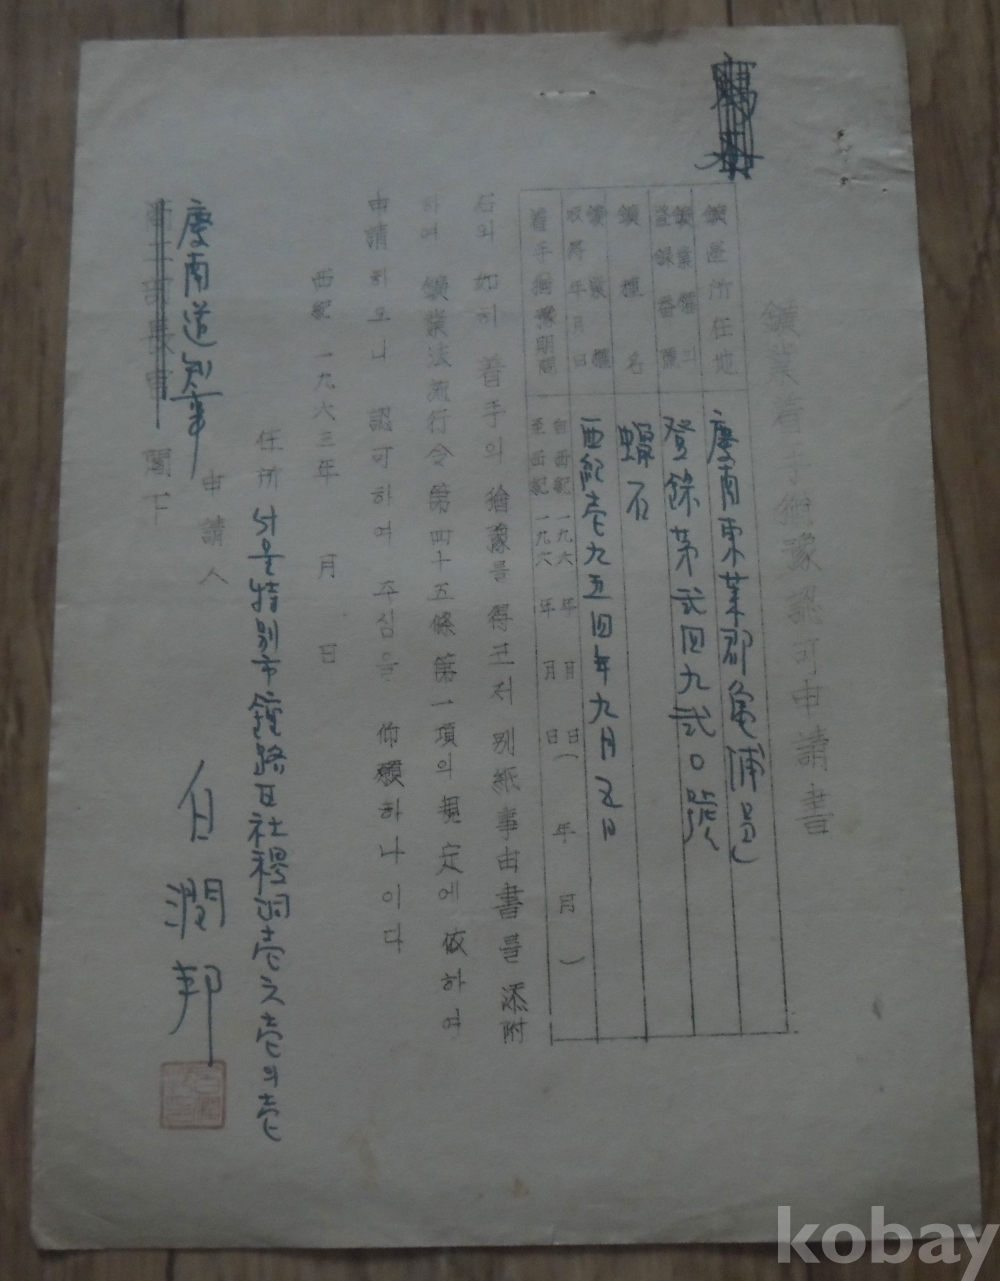 鑛業着手猶豫認可申請書
鑛區所在地
慶南東萊郡龜浦邑
鑛業權의
登錄番號
登錄第弍四九弍〇號
鑛種名
蠟石
鑛業權
取得年月日
西紀壱九五四年九月五日
着手猶豫期間
自西紀一九六 年 月 日
至西紀一九六 年 月 日
( 年 月 )
右와如히 着手의猶豫를得코저別紙事由書를添附
하여 鑛業法施行令第四十五條第一項의規定에依하여
申請하오니 認可하여 주심을 仰願하나이다
西紀一九六三年 月 日
住所 서울特別市鐘路區社稷洞壱之壱의壱
申請人
白潤邦
慶南道知事
商工部長官 閣下
kobay